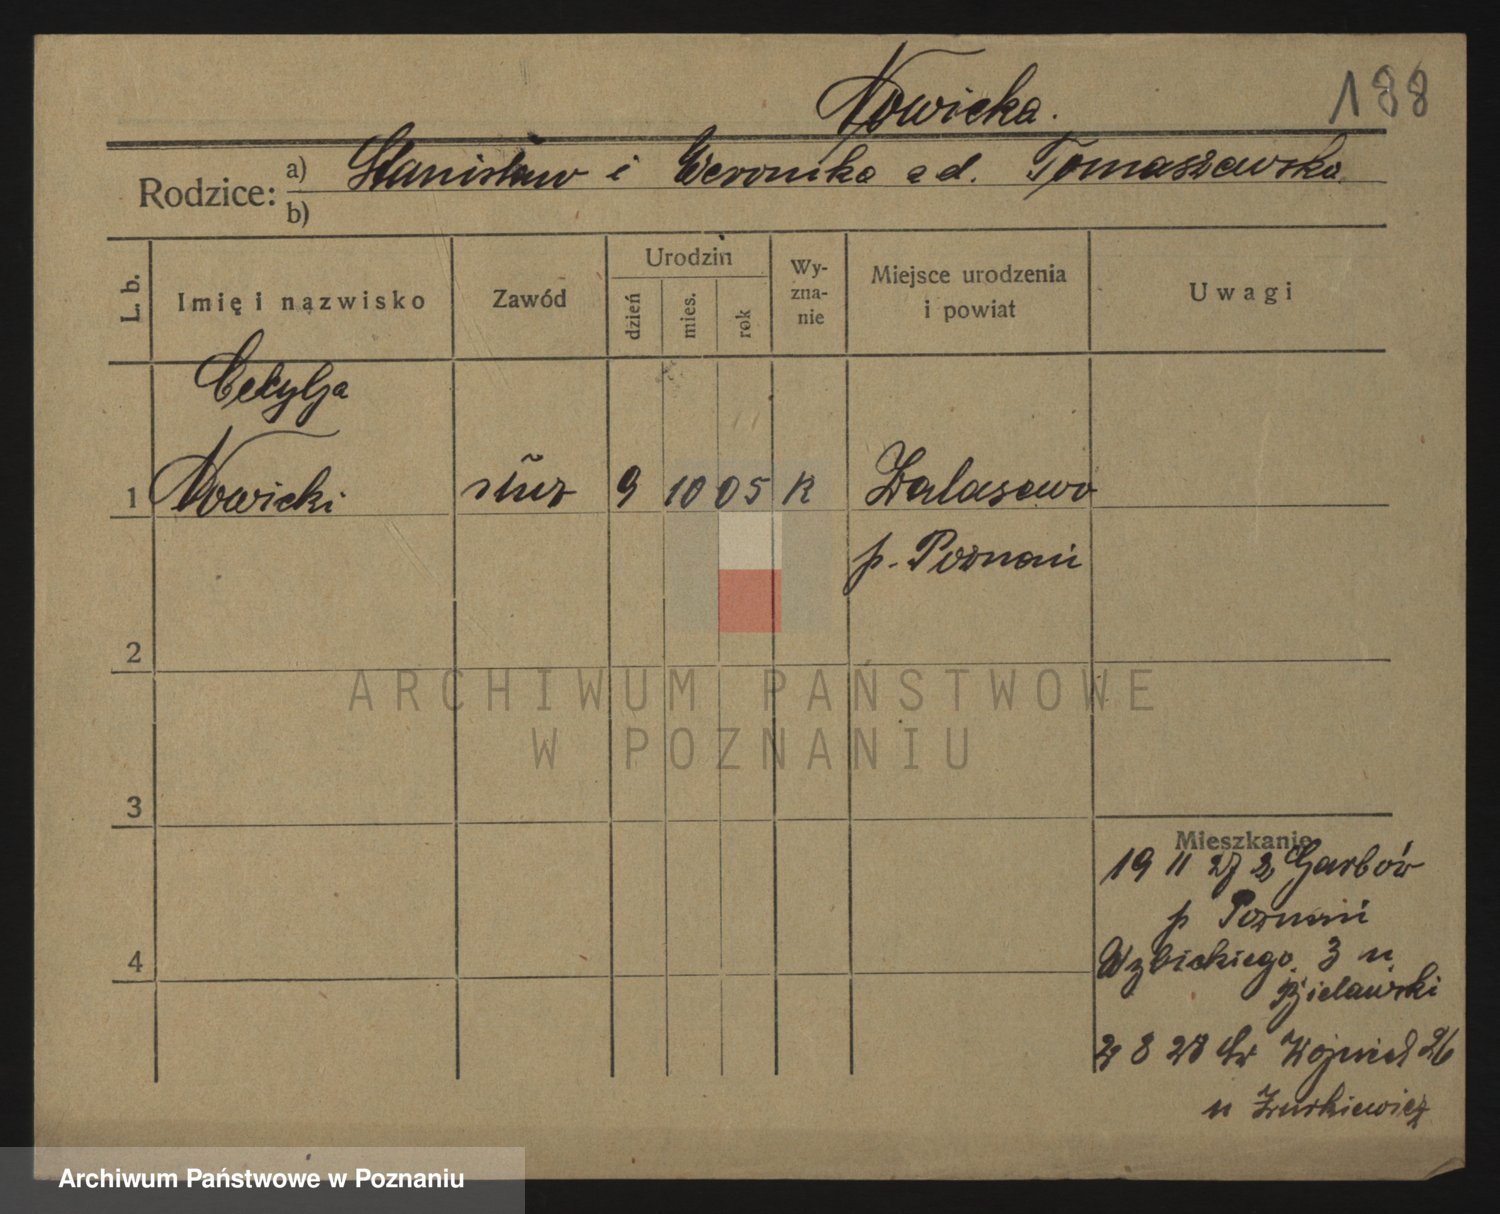 Nowicka.
188
Rodzice: a) Stanisław i Weronika z d. Tomaszewska
b)
L. b.
Imię i nazwisko
Zawód
Urodzin
dzień
mies.
rok
Wy-
zna-
nie
Miejsce urodzenia
i powiat
Uwagi
Cecylja
1 Nowicki służ 9 10 05 K Zalasewo
p. Poznań
2
ARCHIWUM PAŃSTWOWE
W POZNANIU
3
Mieszkanie
19 11 27 z Garbów
p Poznań
4
3 u
Bielawski
8 28 Św Wojciech 26
u Żurkiewicz
Archiwum Państwowe w Poznaniu